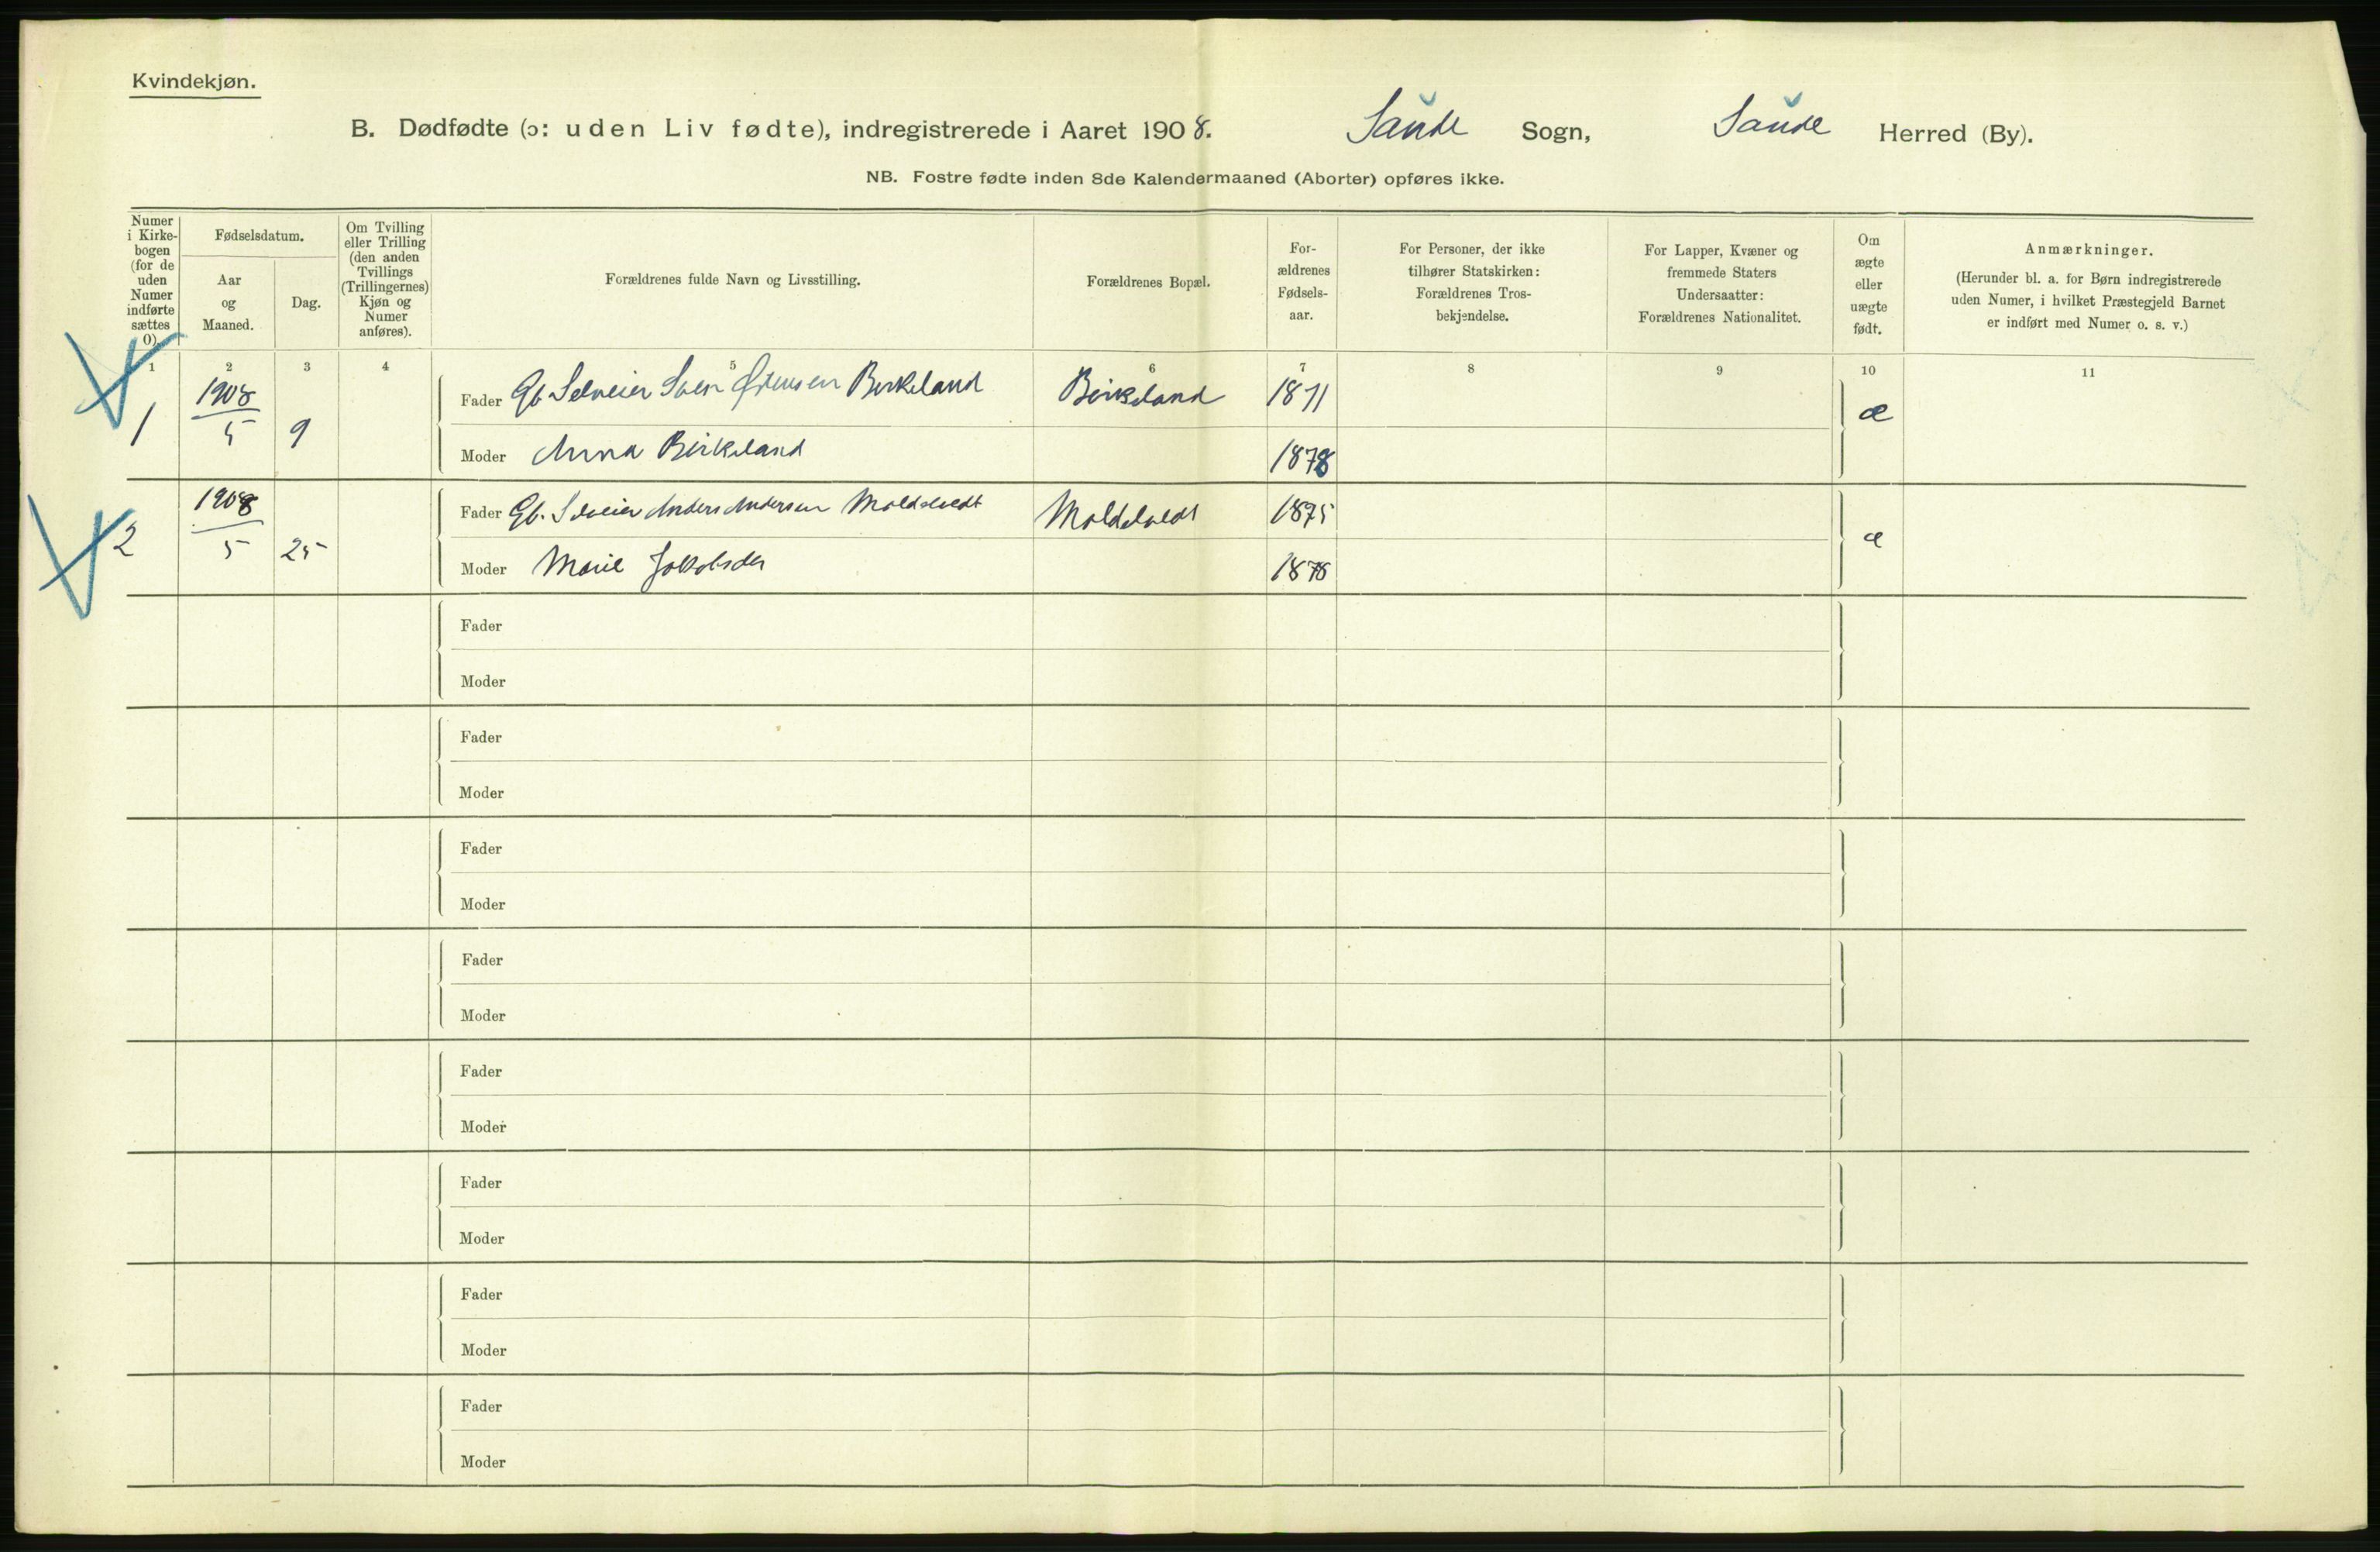 Kvindekjøn.
B. Dødfødte (ɔ: uden Liv fødte), indregistrerede i Aaret 1908. Saude Sogn, Saude Herred (By).
NB. Fostre fødte inden 8de Kalendermaaned (Aborter) opføres ikke.
Numer
i Kirke-
bogen
(for de
uden
Numer
indførte
sættes
0).
Fødselsdatum.
Aar
og
Maaned.
Dag.
Om Tvilling
eller Trilling
(den anden
Tvillings
(Trillingernes)
Kjøn og
Numer
anføres).
Forældrenes fulde Navn og Livsstilling.
Forældrenes Bopæl.
For-
ældrenes
Fødsels-
aar.
For Personer, der ikke
tilhører Statskirken:
Forældrenes Tros-
bekjendelse.
For Lapper, Kvæner og
fremmede Staters
Undersaatter:
Forældrenes Nationalitet.
Om
ægte
eller
uægte
født.
Anmærkninger.
(Herunder bl. a. for Børn indregistrerede
uden Numer, i hvilket Præstegjeld Barnet
er indført med Numer o. s. v.)
1 2 3 4 5 6 7 8 9 10 11
1 1908 5 9 Fader Gb. Selveier Sven Birkeland Birkeland 1871 æ
Moder Anna Birkeland 1878
2 1908 5 25 Fader Gb. Selveier Anders Andersen Moldetvedt 1875 æ
Moder Marie Jakobsdtr 1878
Fader
Moder
Fader
Moder
Fader
Moder
Fader
Moder
Fader
Moder
Fader
Moder
Fader
Moder
Fader
Moder